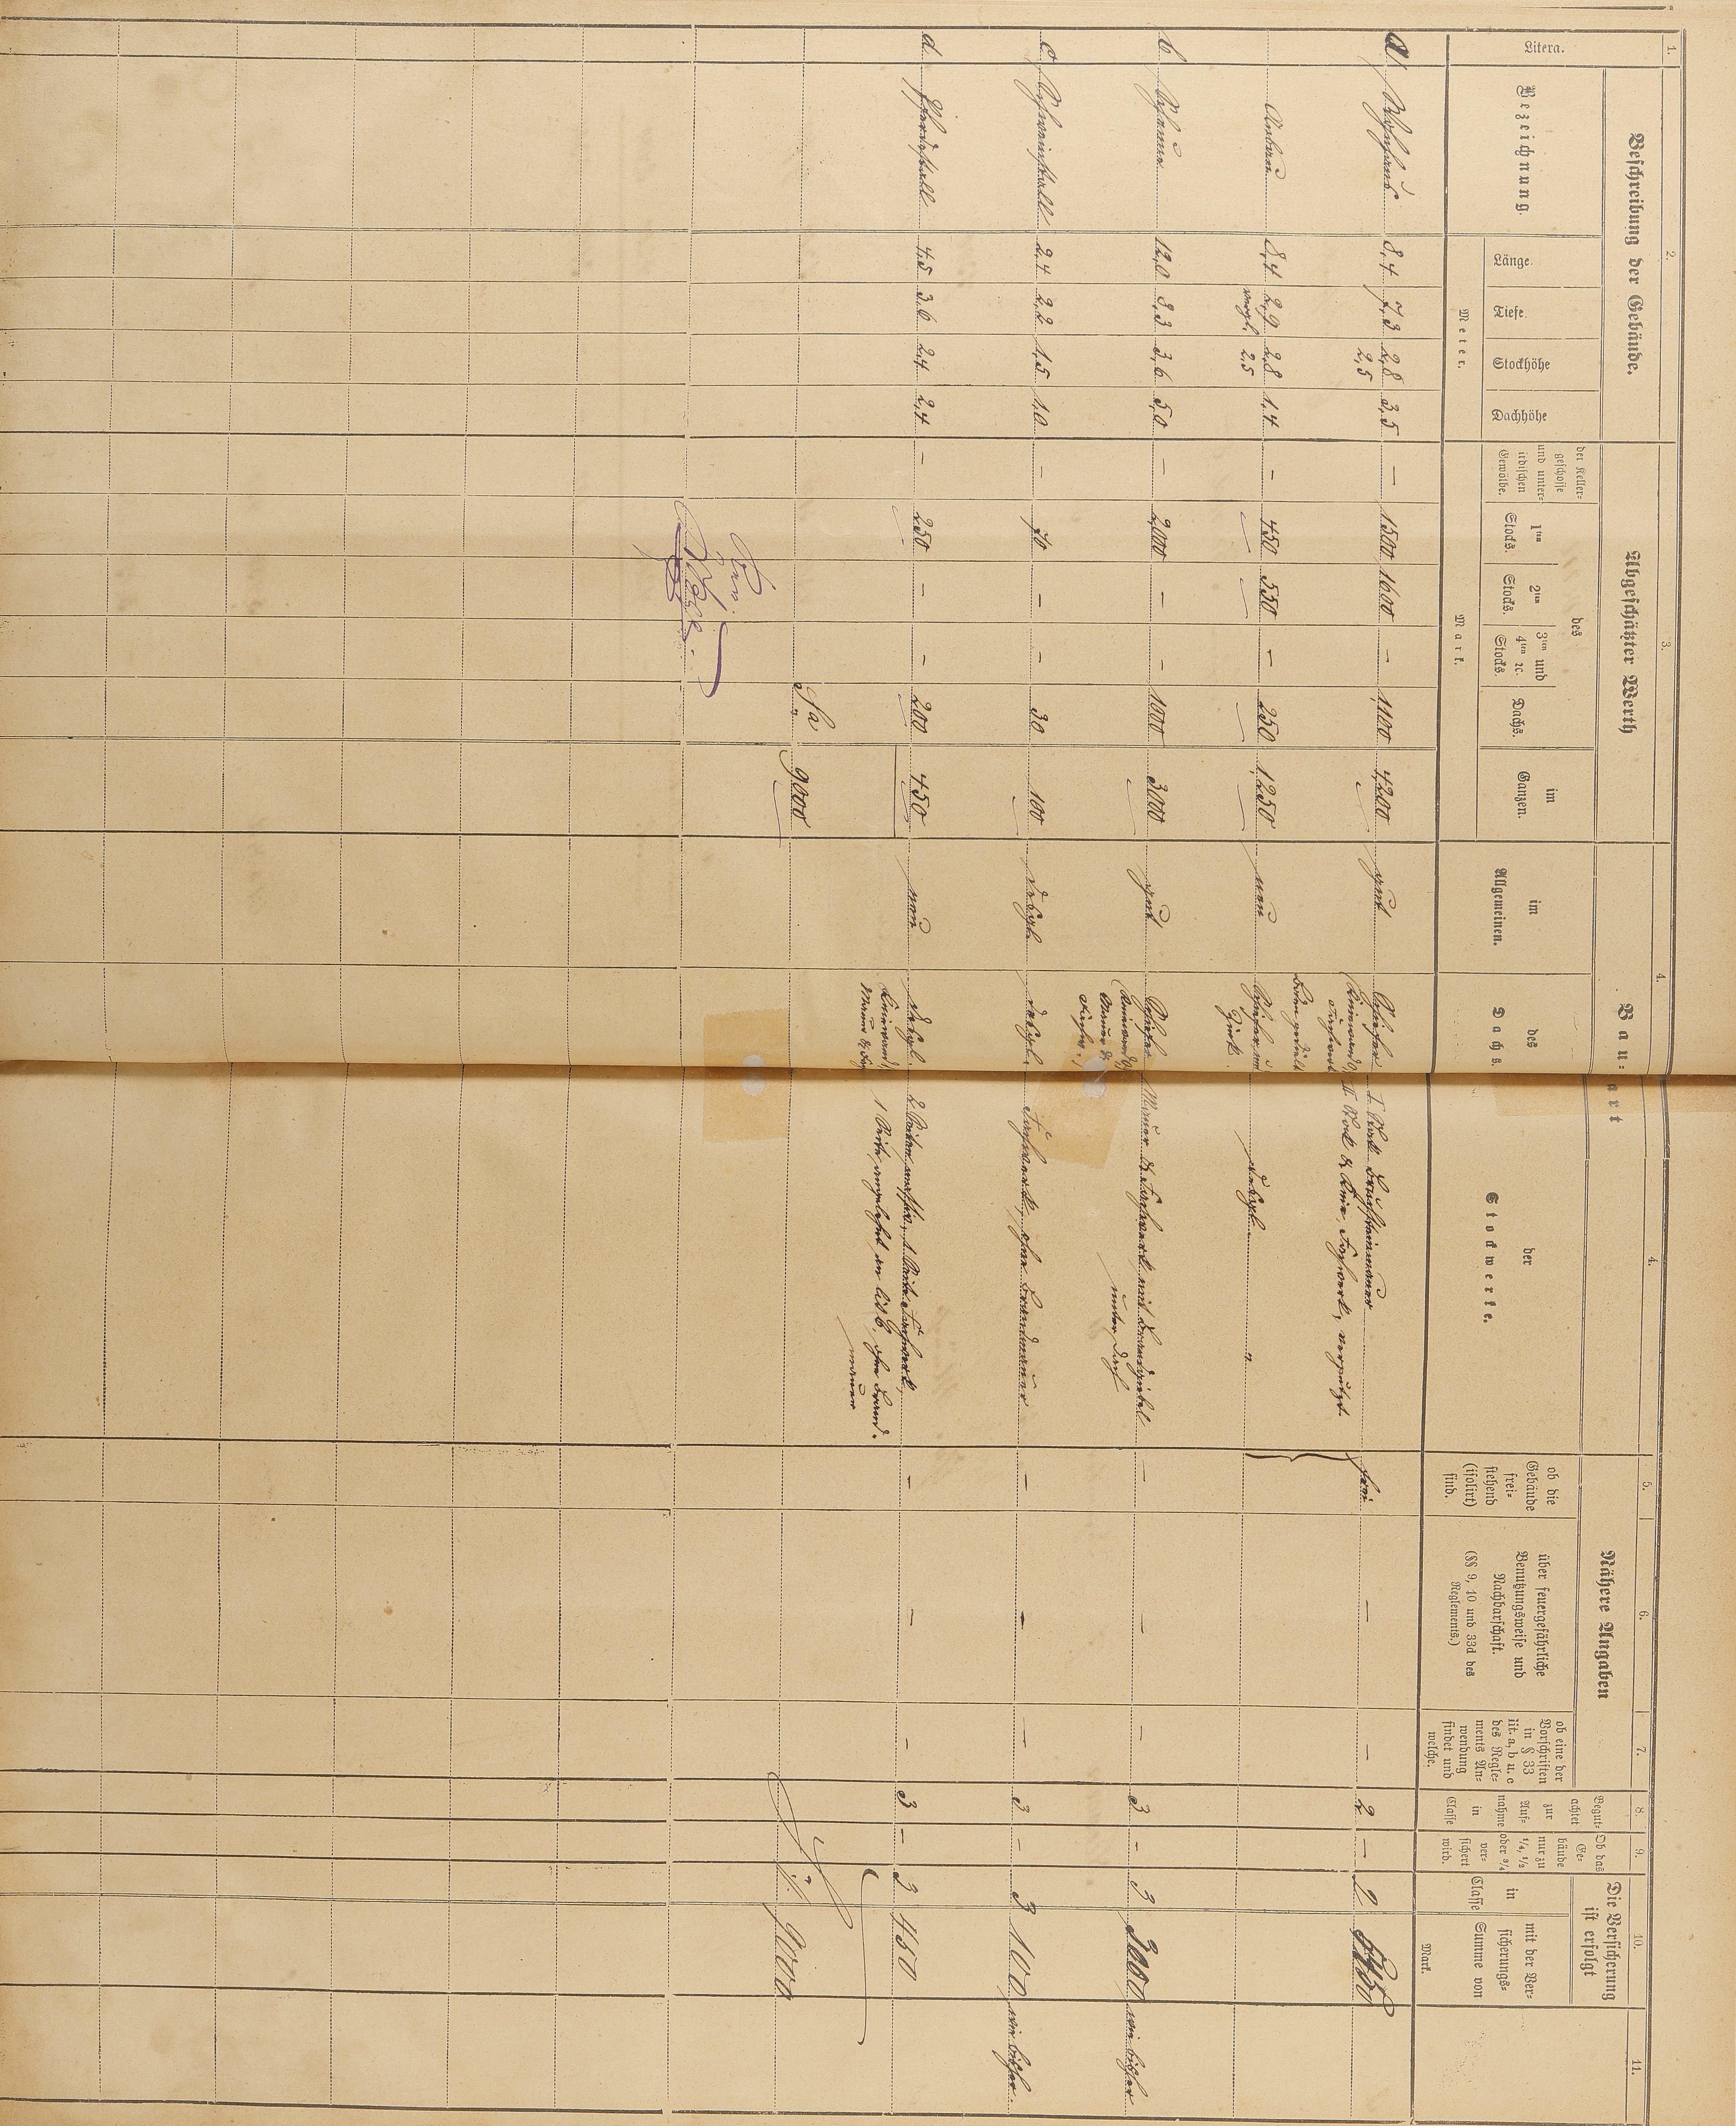 1. 2. 3. 4. 4. 5. 6. 7. 8. 9. 10. 11.
Litera.
Beschreibung der Gebäude.
Bezeichnung.
Länge.
Tiefe.
Stockhöhe
Dachhöhe
Meter.
Abgeschätzter Werth
der Keller-
geschosse
und unter-
irdischen
Gewölbe.
des
1ten
Stocks.
2ten
Stocks.
3ten und
4ten ꝛc.
Stocks.
Dachs.
im
Ganzen.
Mark.
Bau-art
im
Allgemeinen.
des
Dachs.
der
Stockwerke.
Nähere Angaben
ob die
Gebäude
frei-
stehend
(isolirt)
sind.
über feuergefährliche
Benutzungsweise und
Nachbarschaft.
(§§ 9, 10 und 33d des
Reglements.)
ob eine der
Vorschriften
in § 33
lit. a, b u. c
des Regle-
ments An-
wendung
findet und
welche.
Begut-
achtet
zur
Auf-
nahme
in
Classe
Ob das
Ge-
bäude
nur zu
1/4, 1/2
oder 3/4
ver-
sichert
wird.
Die Versicherung
ist erfolgt
in
Classe
mit der Ver-
sicherungs-
Summe von
Mark.
a Wohnhaus 8,4 7,3 2,8 3,5 — 1500 1600 — 1100 4200 gut Schiefer I. Stock Bruchsteinmauer frei — — 2 — 2 5450
2,5 II. Stock & Knie, Fachwerk, verputzt
Anbau 8,4 2,9 2,8 1,4 — 450 550 — 250 1250 neu Schiefer desgl.
2,5
b Scheune 12,0 8,3 3,6 5,0 — 2000 — — 1000 3000 gut Schiefer Mauer & Fachwerk mit Brandgiebel — — — 3 — 3 3000 wie bisher
unter Dach
c Schweinstall 2,4 2,2 1,5 1,0 — 70 — — 30 100 desgl. desgl. Fachwerk, ohne Brandmauer — — — 3 — 3 100 wie bisher.
d Pferdestall 4,5 3,6 2,4 2,4 — 250 — — 200 450 neu desgl. 2 Seiten massiv, 1 Seite Fachwerk, — — — 3 — 3 450
1 Seite angelehnt an lit b, ohne Brand-
mauer
Sa. 9000 9000